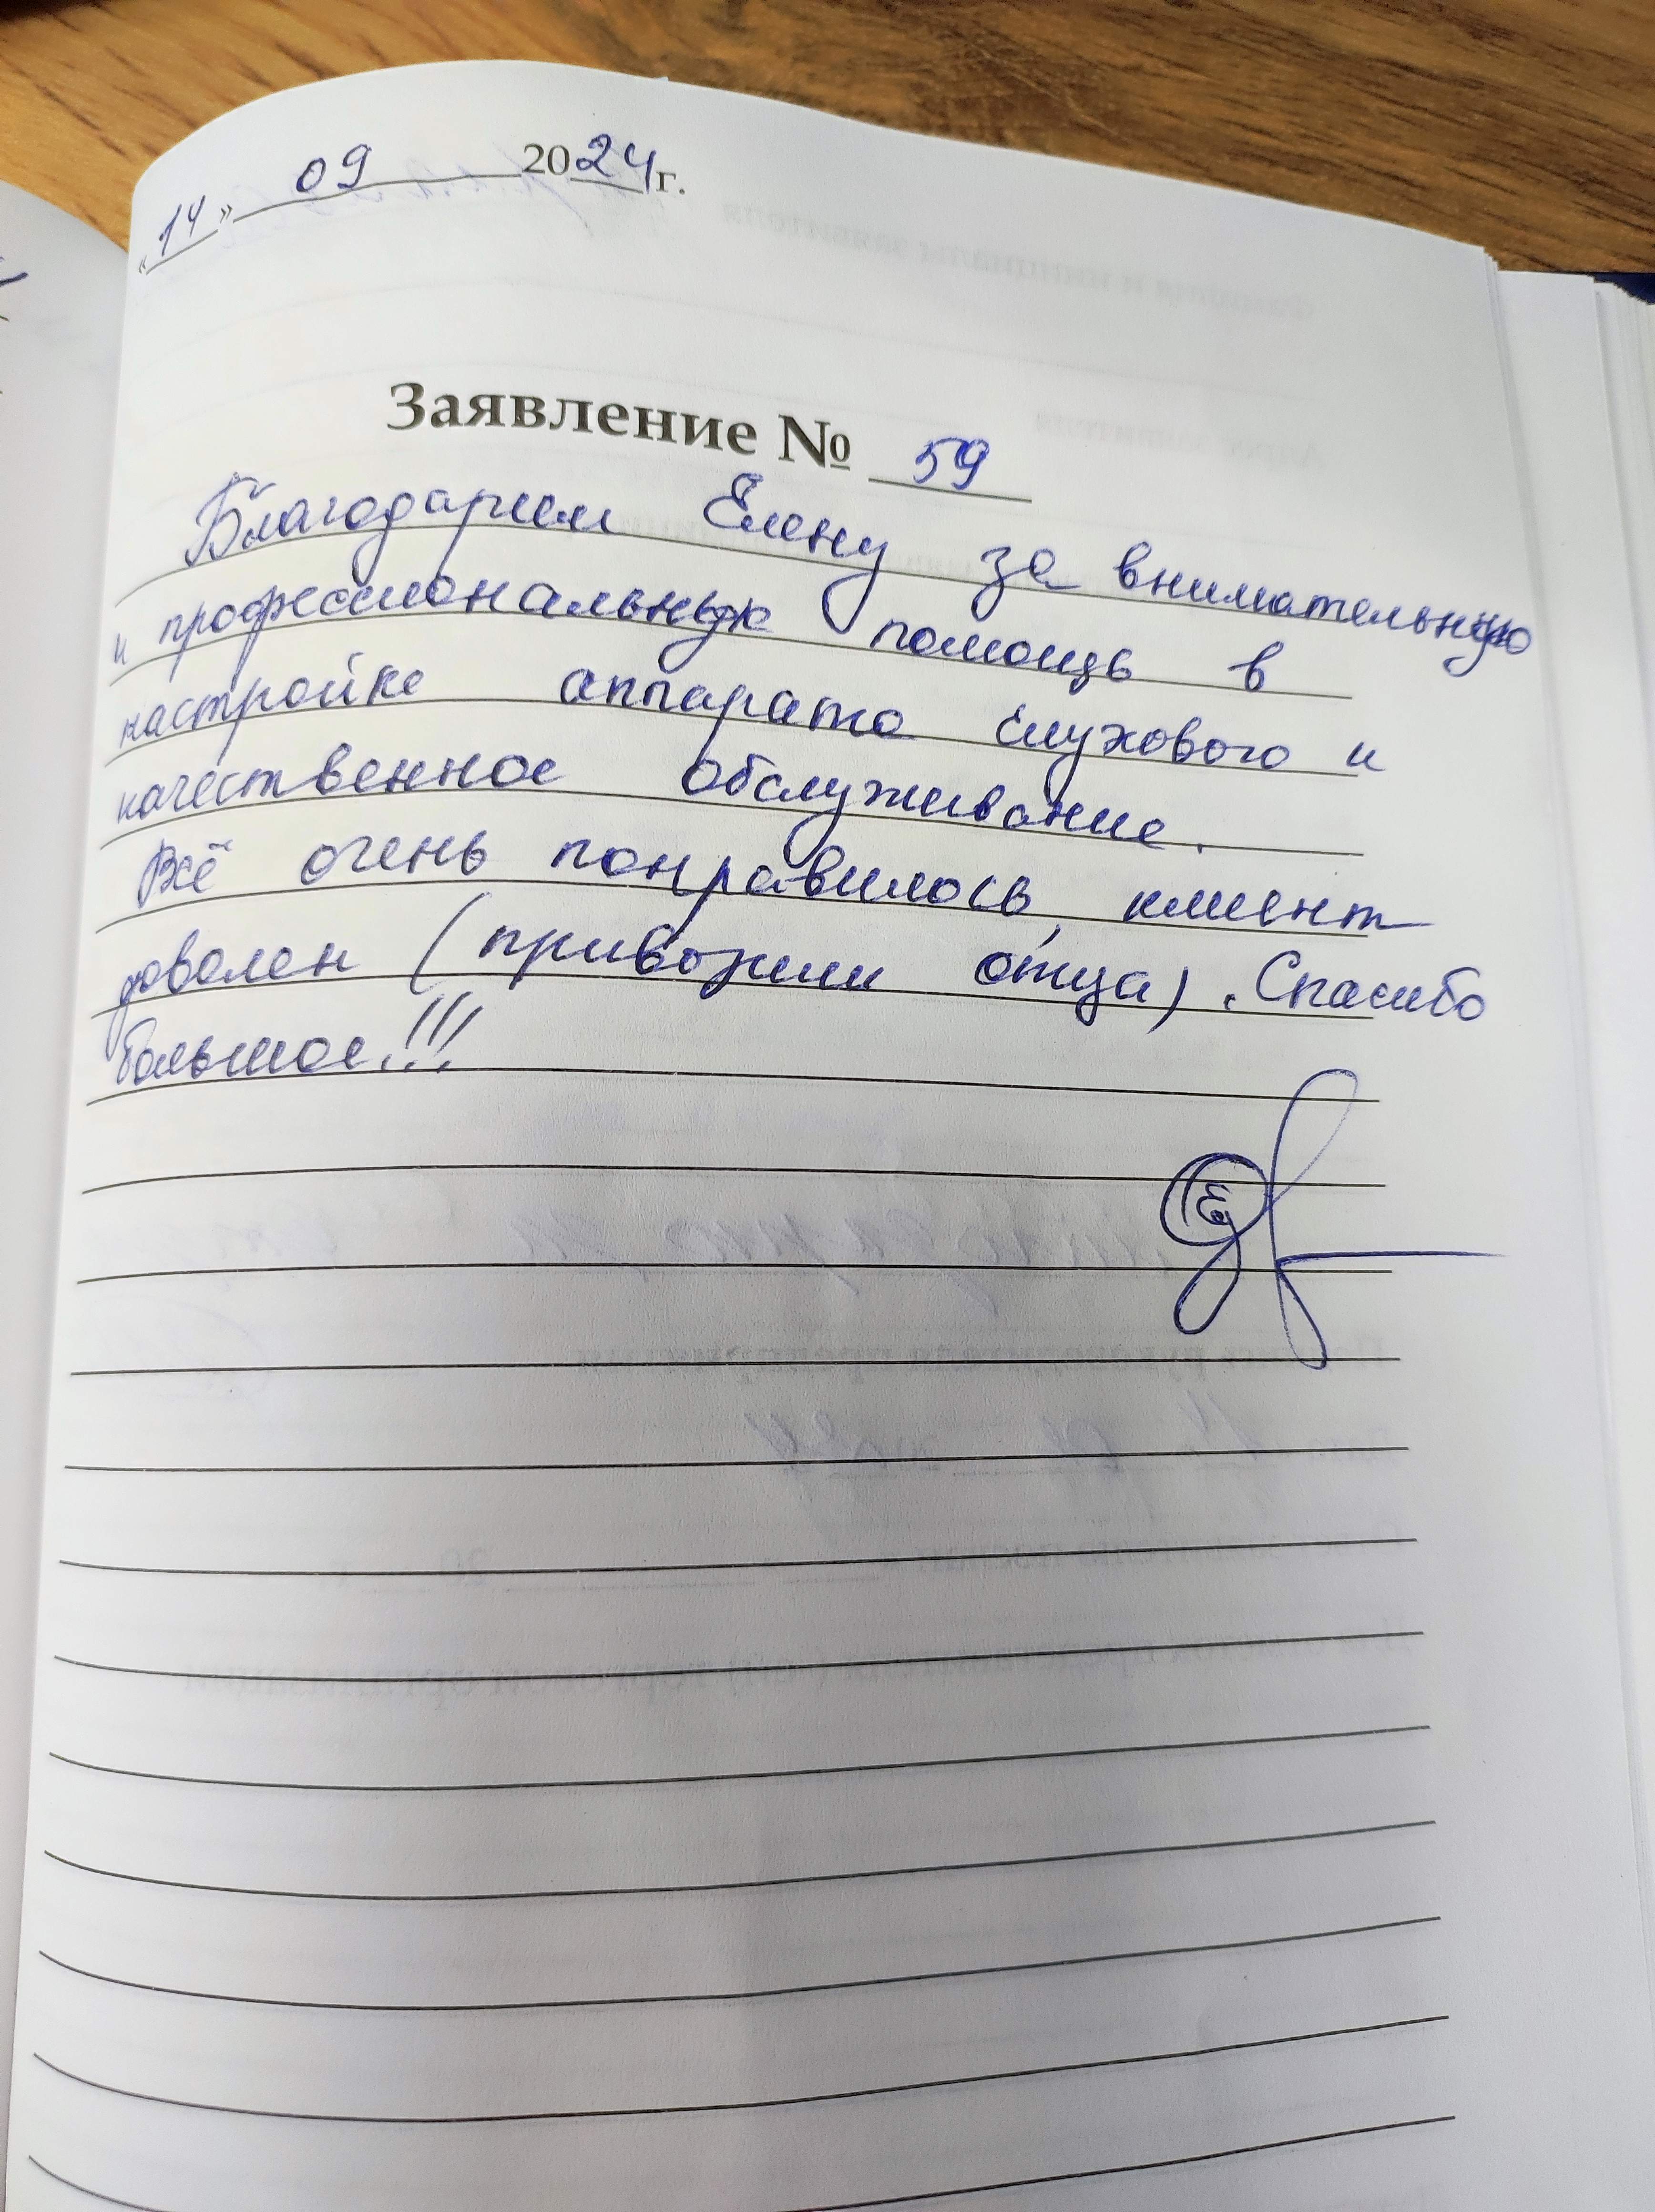 «14» 09 2024г.
Заявление № 59
Благодарим Елену за внимательную
и профессиональную помощь в
настройке аппарата слухового и
качественное обслуживание.
Всё очень понравилось, клиент
доволен (привозили отца). Спасибо
большое!!!